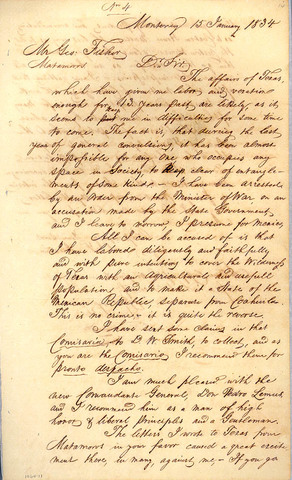 No 4
Monterey 15 January 1834
Mr Geo. Fisher
Matamoros Dr Sir,
The affairs of Texas,
which have given me labor and vexation
enough for 13 years past are likely, as it
seems to put me in difficulties for some time
to come. The fact is, that during the last
year of general convulsions, it has been almost
impossible for any one who occupies any
space in Society, to keep clear of entangle-
ments of some kind — I have been arrested
by an order from the Minister of War on an
accusation made by the State Government,
and I leave to morrow, I presume for Mexico
All I can be accused of is that
I have labored diligently and faithfully,
and with pure intentions to cover the Wilderness
of Texas with an Agricultural and usefull
population, and to make it a State of the
Mexican Republic, seperate from Coahuila.
This is no crime: it is quite the reverse.
I have sent some claims in that
Comisaria, to D W Smith, to collect, and as
you are the Comisario, I recommend them for
pronto despacho.
I am much pleased with the
new Comandante General, Don Pedro Lemus
and I recommend him as a man of high
honor & liberal principles and a Gentleman.
The letters I wrote to Texas from
Matamoros in your favor caused a great excite-
ment there, in many, against me, — If you go